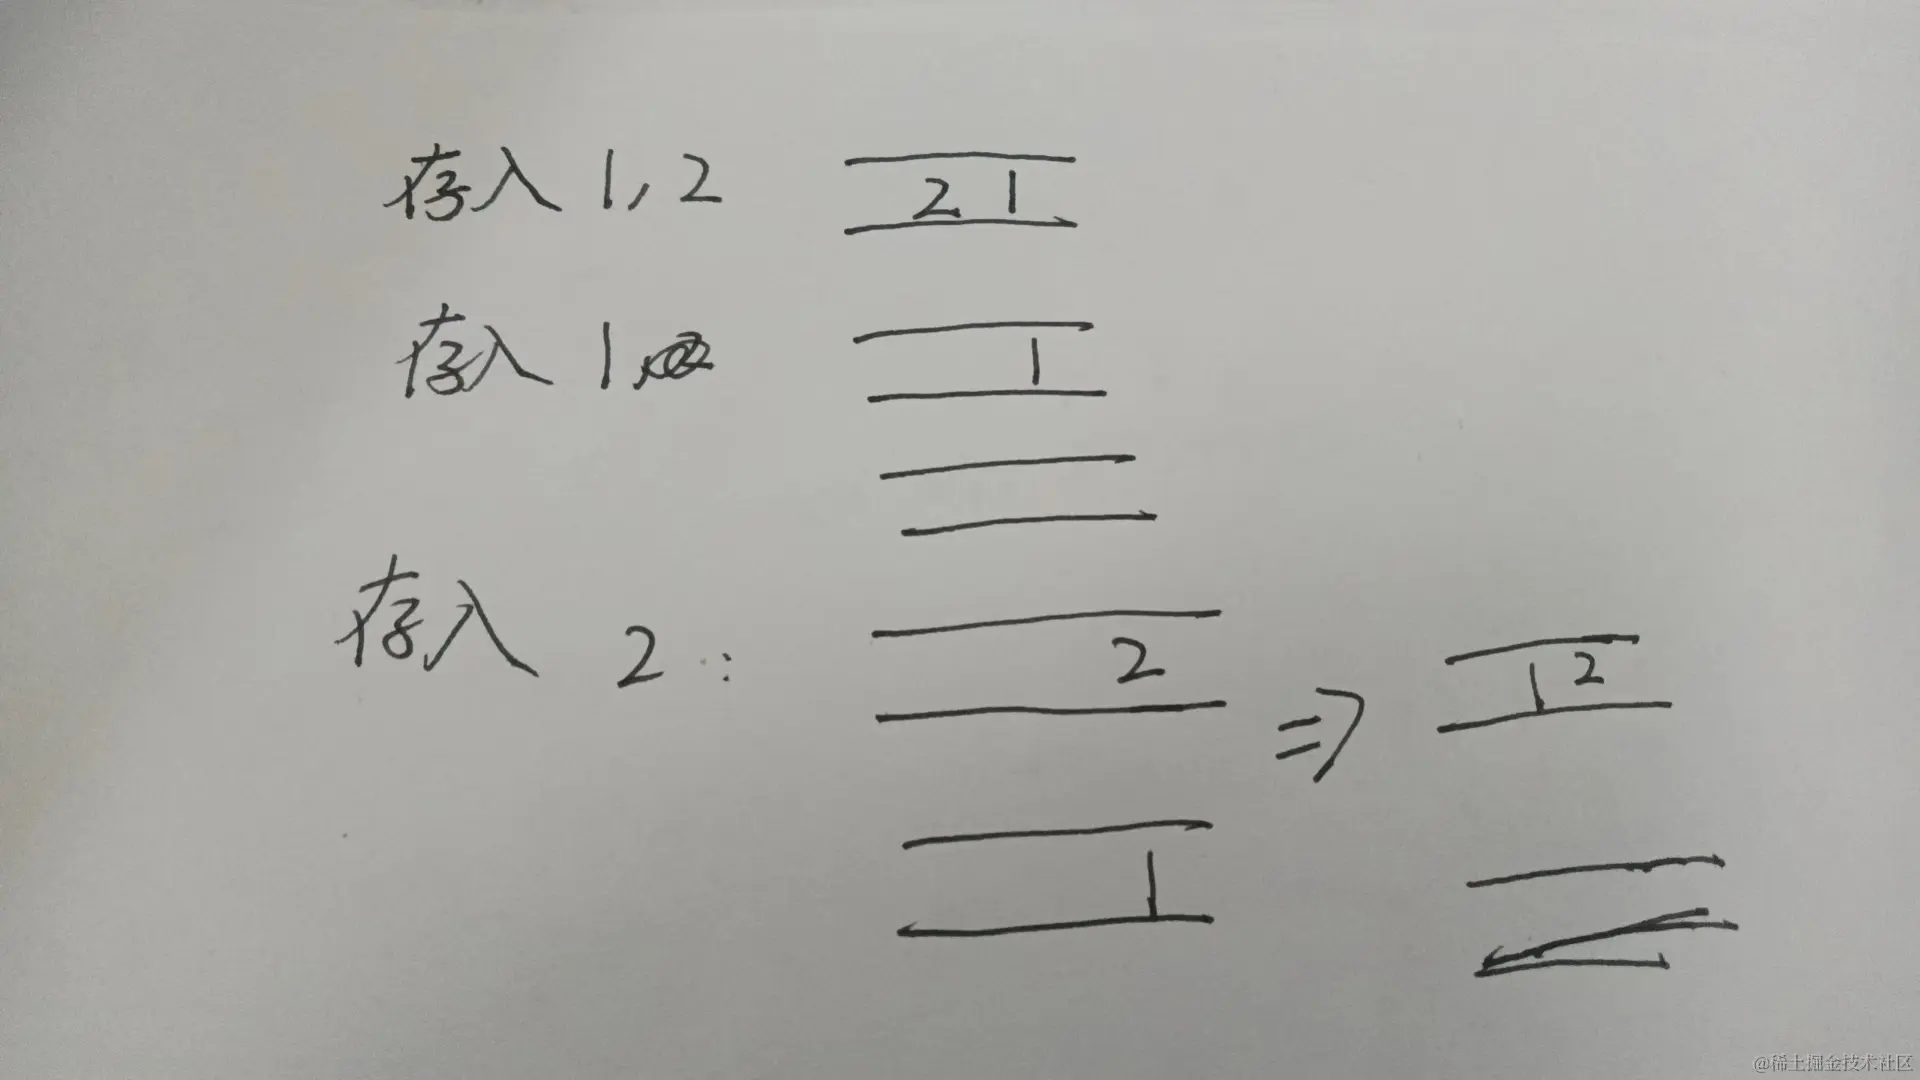 存入 1, 2 2 1
存入 1, 1
存入 2: 2
1 2
1
@稀土掘金技术社区